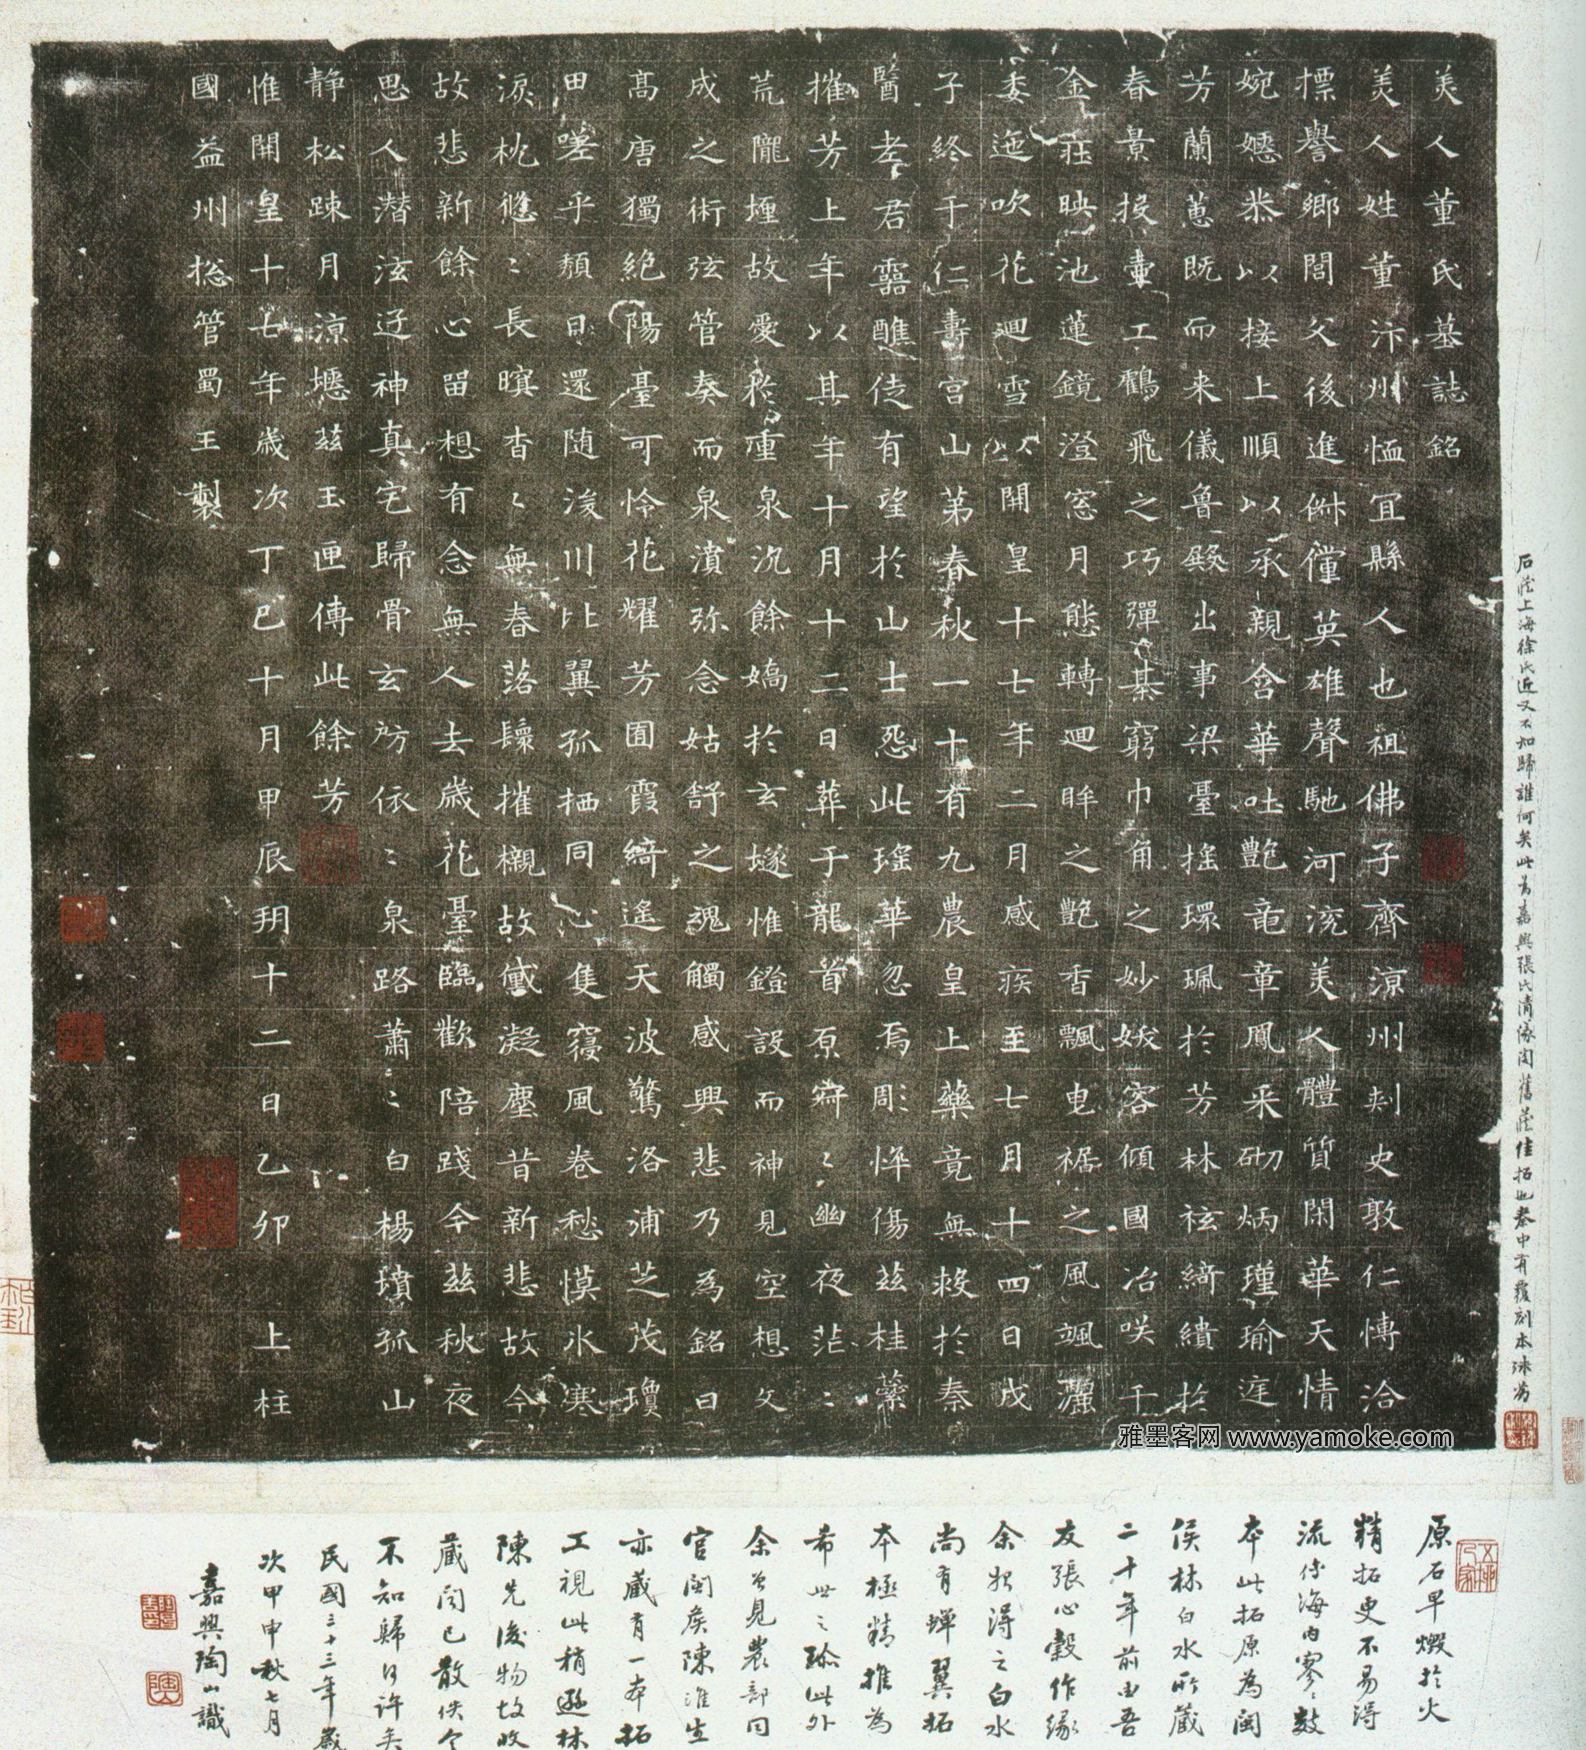 美人董氏墓誌銘
美人姓董汴州恤宜縣人也祖佛子齊涼州刺史敦仁慱洽
摽譽鄉閭父後進俶儻英雄聲馳河流美人體質閑華天情
婉嫕恭以接上順以承親含華吐艷竜章鳳采砌炳瑾瑜庭
芳蘭蕙既而来儀魯殿出事梁臺搖環珮於芳林袨綺繢於
春景投壷工鶴飛之巧彈棊窮巾角之妙妖容傾國冶咲千
金莊映池蓮鏡澄窓月態轉迴眸之艷香飄曳裾之風颯灑
委迤吹花迴雪以開皇十七年二月感疾至七月十四日戊
子終于仁壽宮山第春秋一十有九農皇上藥竟無救於秦
醫老君靈醮徒有望於山士怨此瑤華忽焉彫悴傷茲桂蘂
摧芳上年以其年十月十二日葬于龍首原寂〻幽夜茫〻
荒隴埋故愛於重泉沉餘嬌於玄墜惟鐙設而神見空想文
成之術弦管奏而泉濆弥念姑舒之魂觸感興悲乃為銘曰
髙唐獨絶陽臺可怜花耀芳囿霞綺遙天波驚洛浦芝茂瓊
田嗟乎頹日還随浚川比翼孤栖同心隻寢風卷愁慔氷寒
淚枕悠〻長暝杳〻無春落鬟摧櫬故黛凝塵昔新悲故今
故悲新餘心留想有念無人去歲花臺臨歡陪踐今茲秋夜
思人潜泫迂神真宅歸骨玄房依〻泉路蕭〻白楊墳孤山
静松踈月涼瘞茲玉匣傳此餘芳
惟開皇十七年歲次丁巳十月甲辰朔十二日乙卯上柱
國益州揔管蜀王製
石舊上海徐氏近又不知歸誰何矣此為嘉興張氏清儀閣舊藏佳拓也秦中有覆刻本
原石早燬於火
精拓更不易得
流傳海內寥〻數
本此拓原為閩
侯林白水所藏
二十年前由吾
友張心穀作緣
余始得之白水
尚有蟬翼拓
本極精推為
希世之珍此外
余曾見農部同
官閩侯陳淮生
亦藏有一本拓
工視此稍遜林
陳先後物故收
藏聞已散佚今
不知歸何許矣
民國三十三年歲
次甲申秋七月
嘉興陶 識
雅墨客网 www.yamoke.com